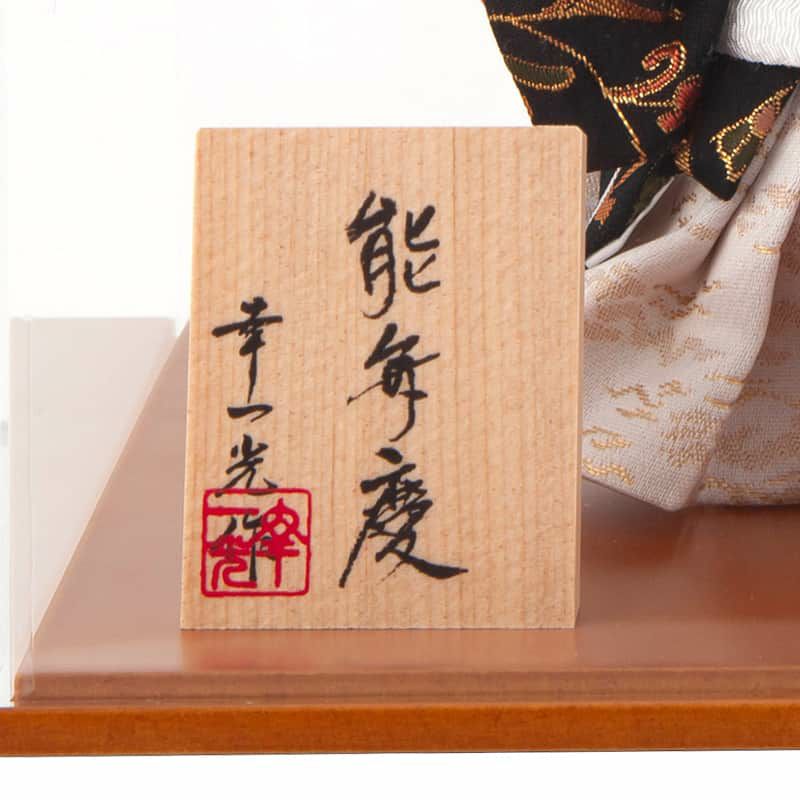 能弁慶
幸一光作
幸一光